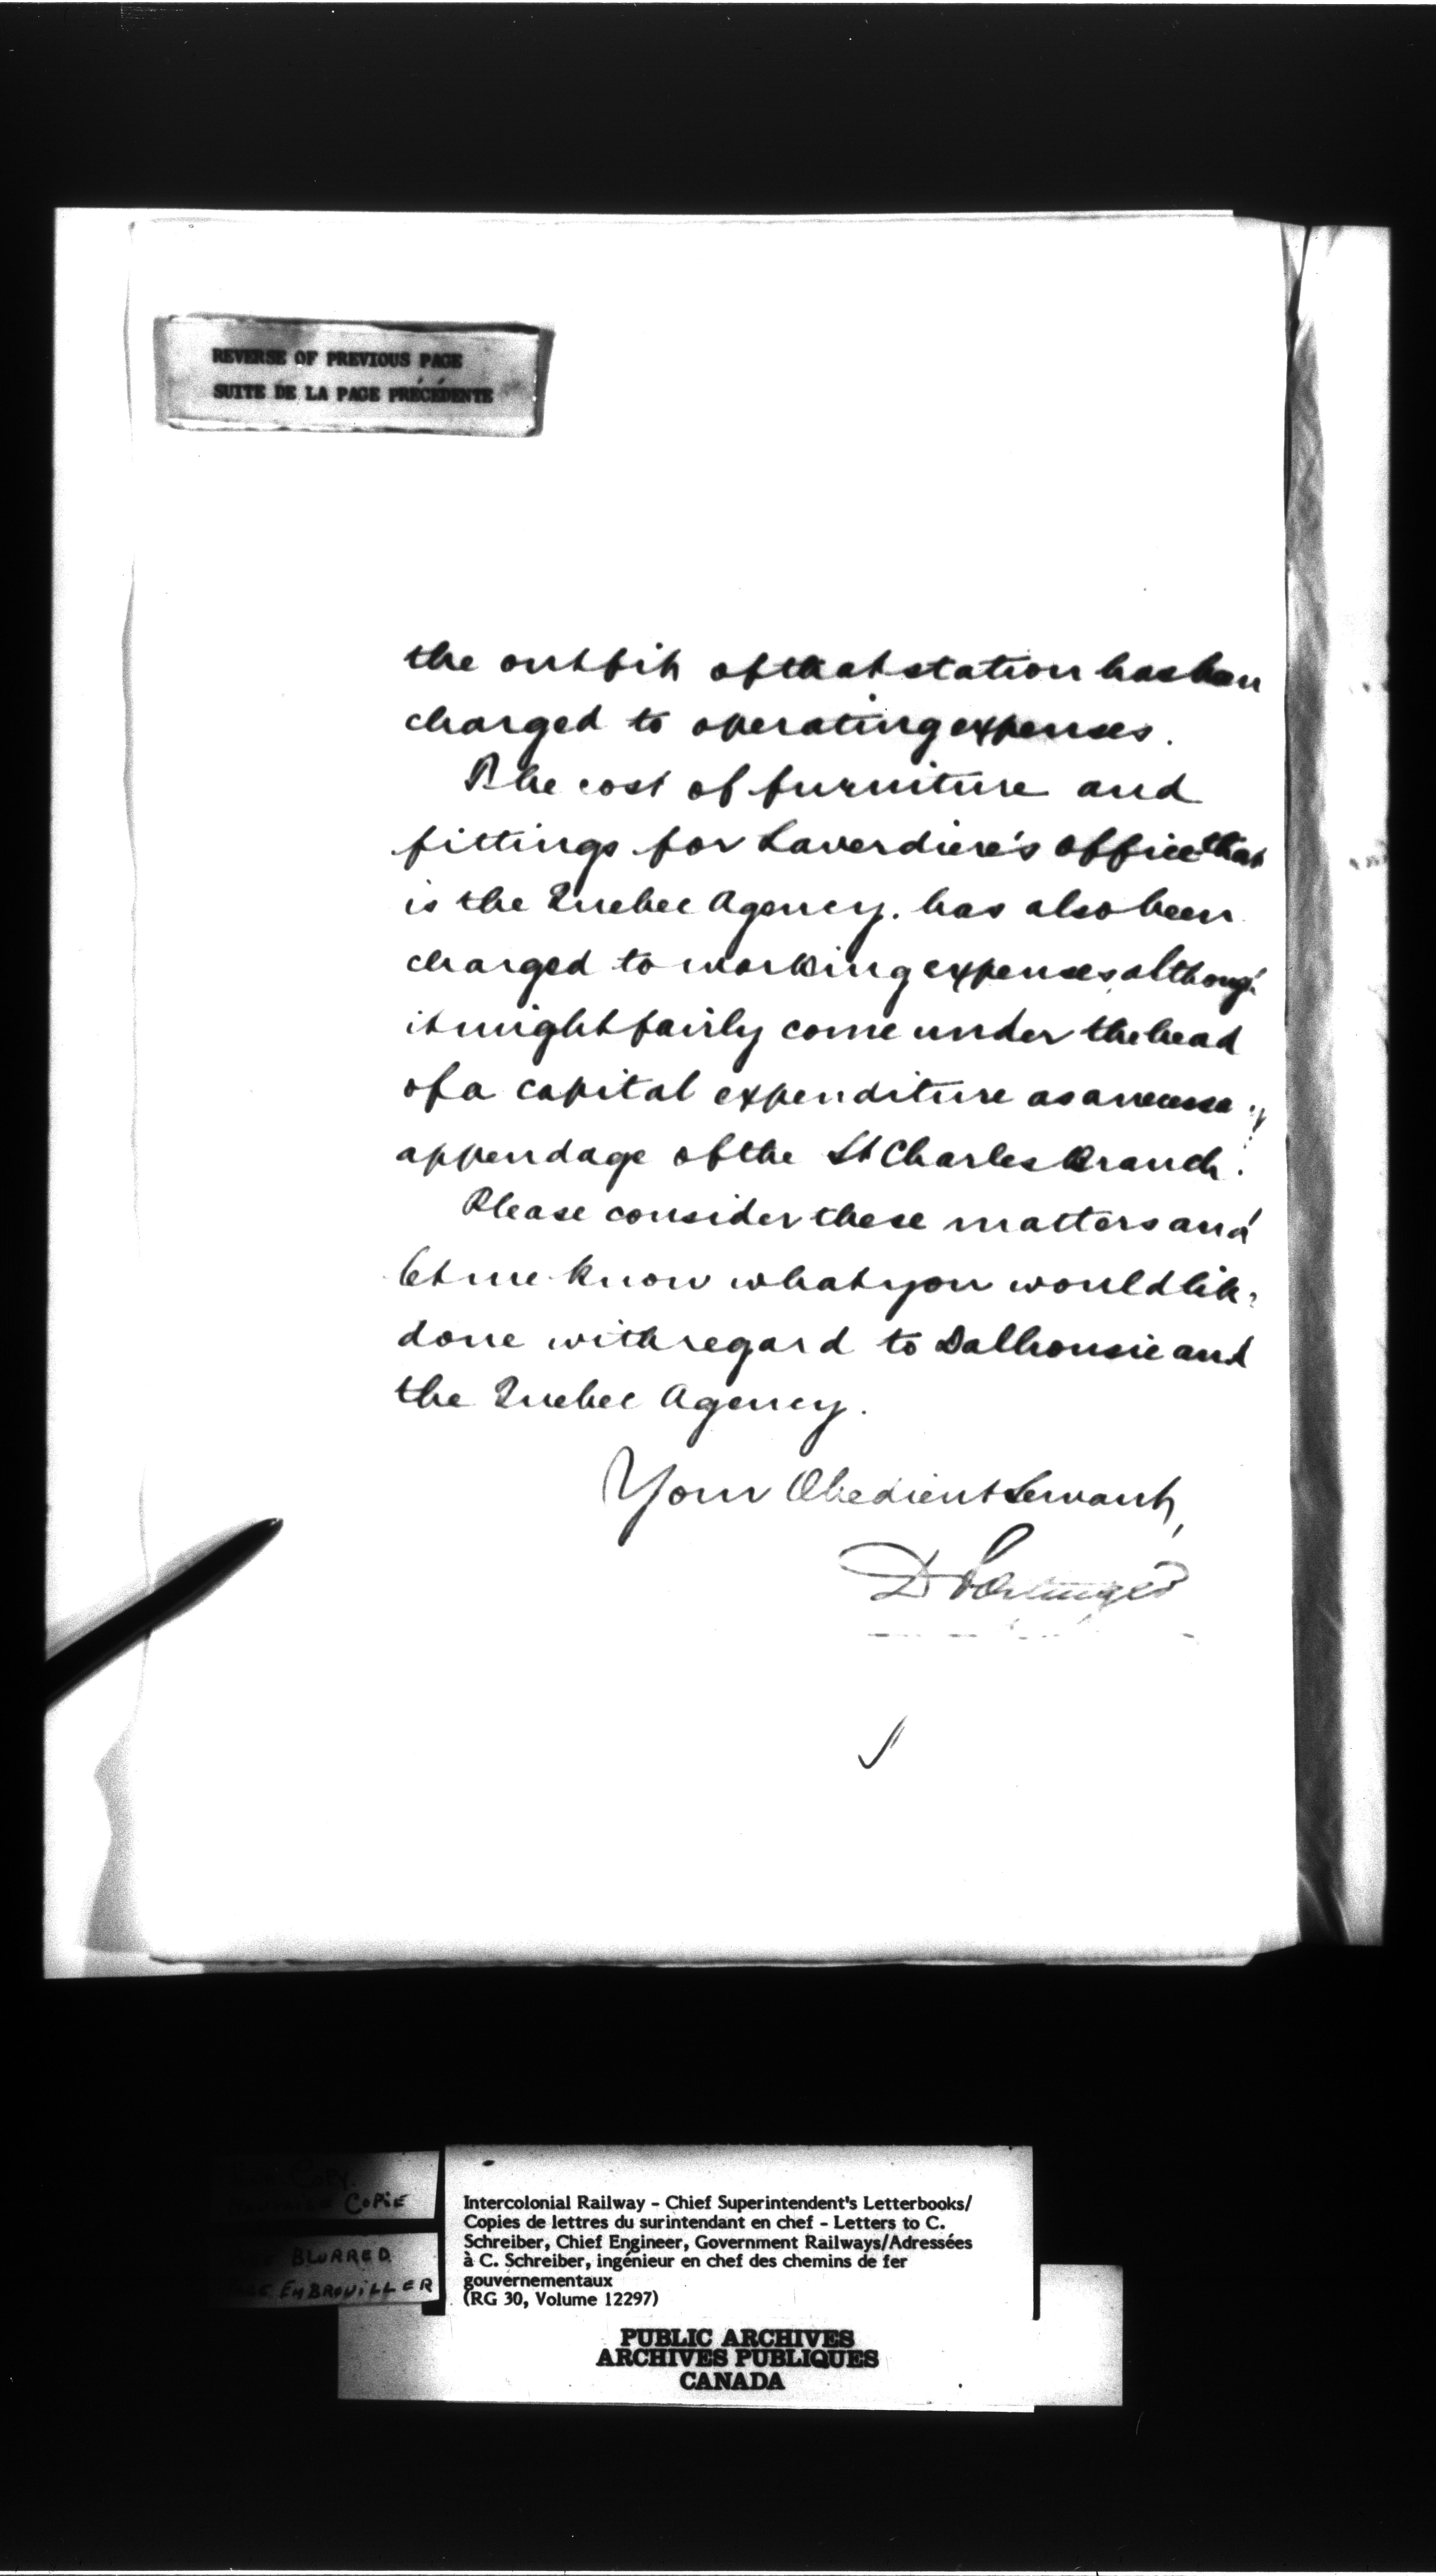 REVERSE OF PREVIOUS PAGE
SUITE DE LA PAGE PRÉCÉDENTE
the outfit of that station has been
charged to operating expenses.
The cost of furniture and
fittings for Laverdiere's office that
is the Quebec Agency. has also been
charged to working expenses, although
it might fairly come under the head
of a capital expenditure as a necessary
appendage of the St Charles Branch.
Please consider these matters and
let me know what you would like
done with regard to Dalhousie and
the Quebec Agency.
Your Obedient Servant,
D Pottinger
COPY
COPIE
BLURRED
EMBROUILLER
Intercolonial Railway - Chief Superintendent's Letterbooks/
Copies de lettres du surintendant en chef - Letters to C.
Schreiber, Chief Engineer, Government Railways/Adressées
à C. Schreiber, ingénieur en chef des chemins de fer
gouvernementaux
(RG 30, Volume 12297)
PUBLIC ARCHIVES
ARCHIVES PUBLIQUES
CANADA